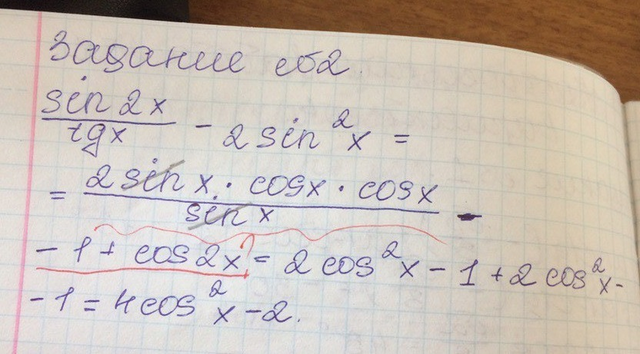 Задание №2.
sin 2x / tgx - 2 sin²x =
= 2 sin x · cosx · cosx / sin x -
- 1 + cos 2x = 2 cos²x - 1 + 2 cos²x -
- 1 = 4 cos²x - 2.